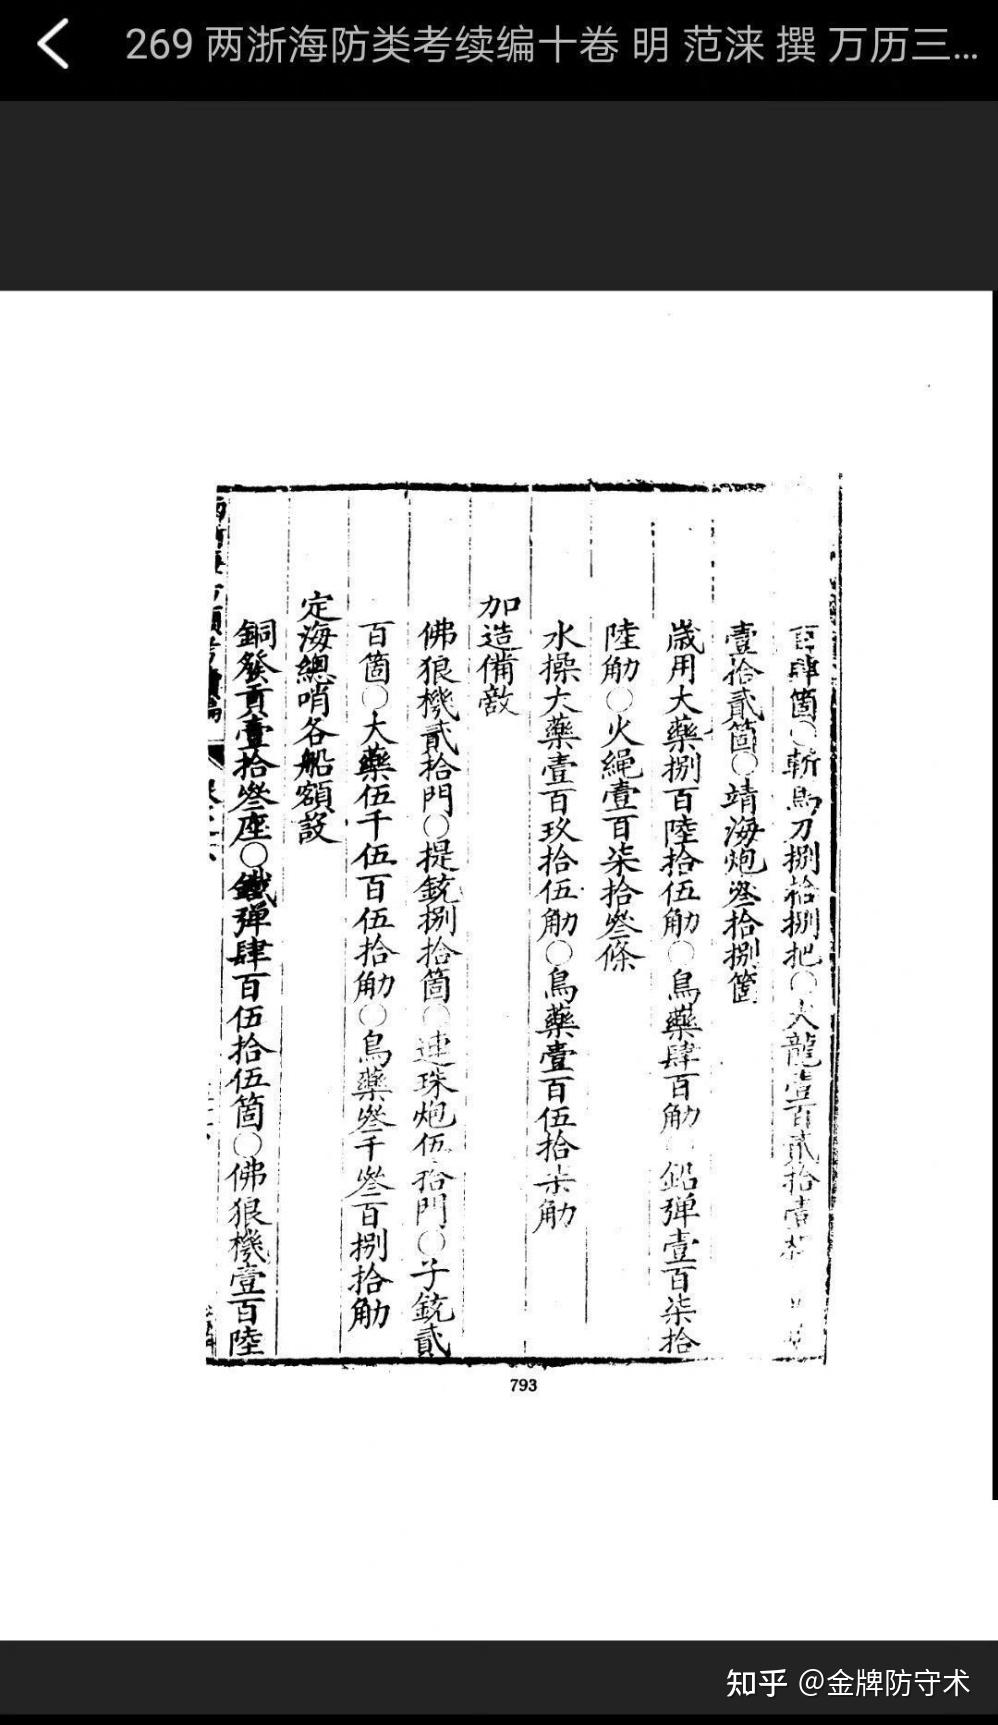 269 两浙海防类考续编十卷 明 范涞 撰 万历三...
百肆箇○斬馬刀捌拾捌把○火龍壹百貳拾壹
壹拾貳箇○靖海炮叁拾捌箇
歲用大藥捌百陸拾伍觔○鳥藥肆百觔 鉛弹壹百柒拾
陸觔○火繩壹百柒拾叁條
水操大藥壹百玖拾伍觔○鳥藥壹百伍拾柒觔
加造備敵
佛狼機貳拾門○提銃捌拾箇○連珠炮伍拾門○子銃貳
百箇○大藥伍千伍百伍拾觔○鳥藥叁千叁百捌拾觔
定海總哨各船額設
銅發貢壹拾叁座○鐵弹肆百伍拾伍箇○佛狼機壹百陸
793
知乎 @金牌防守术